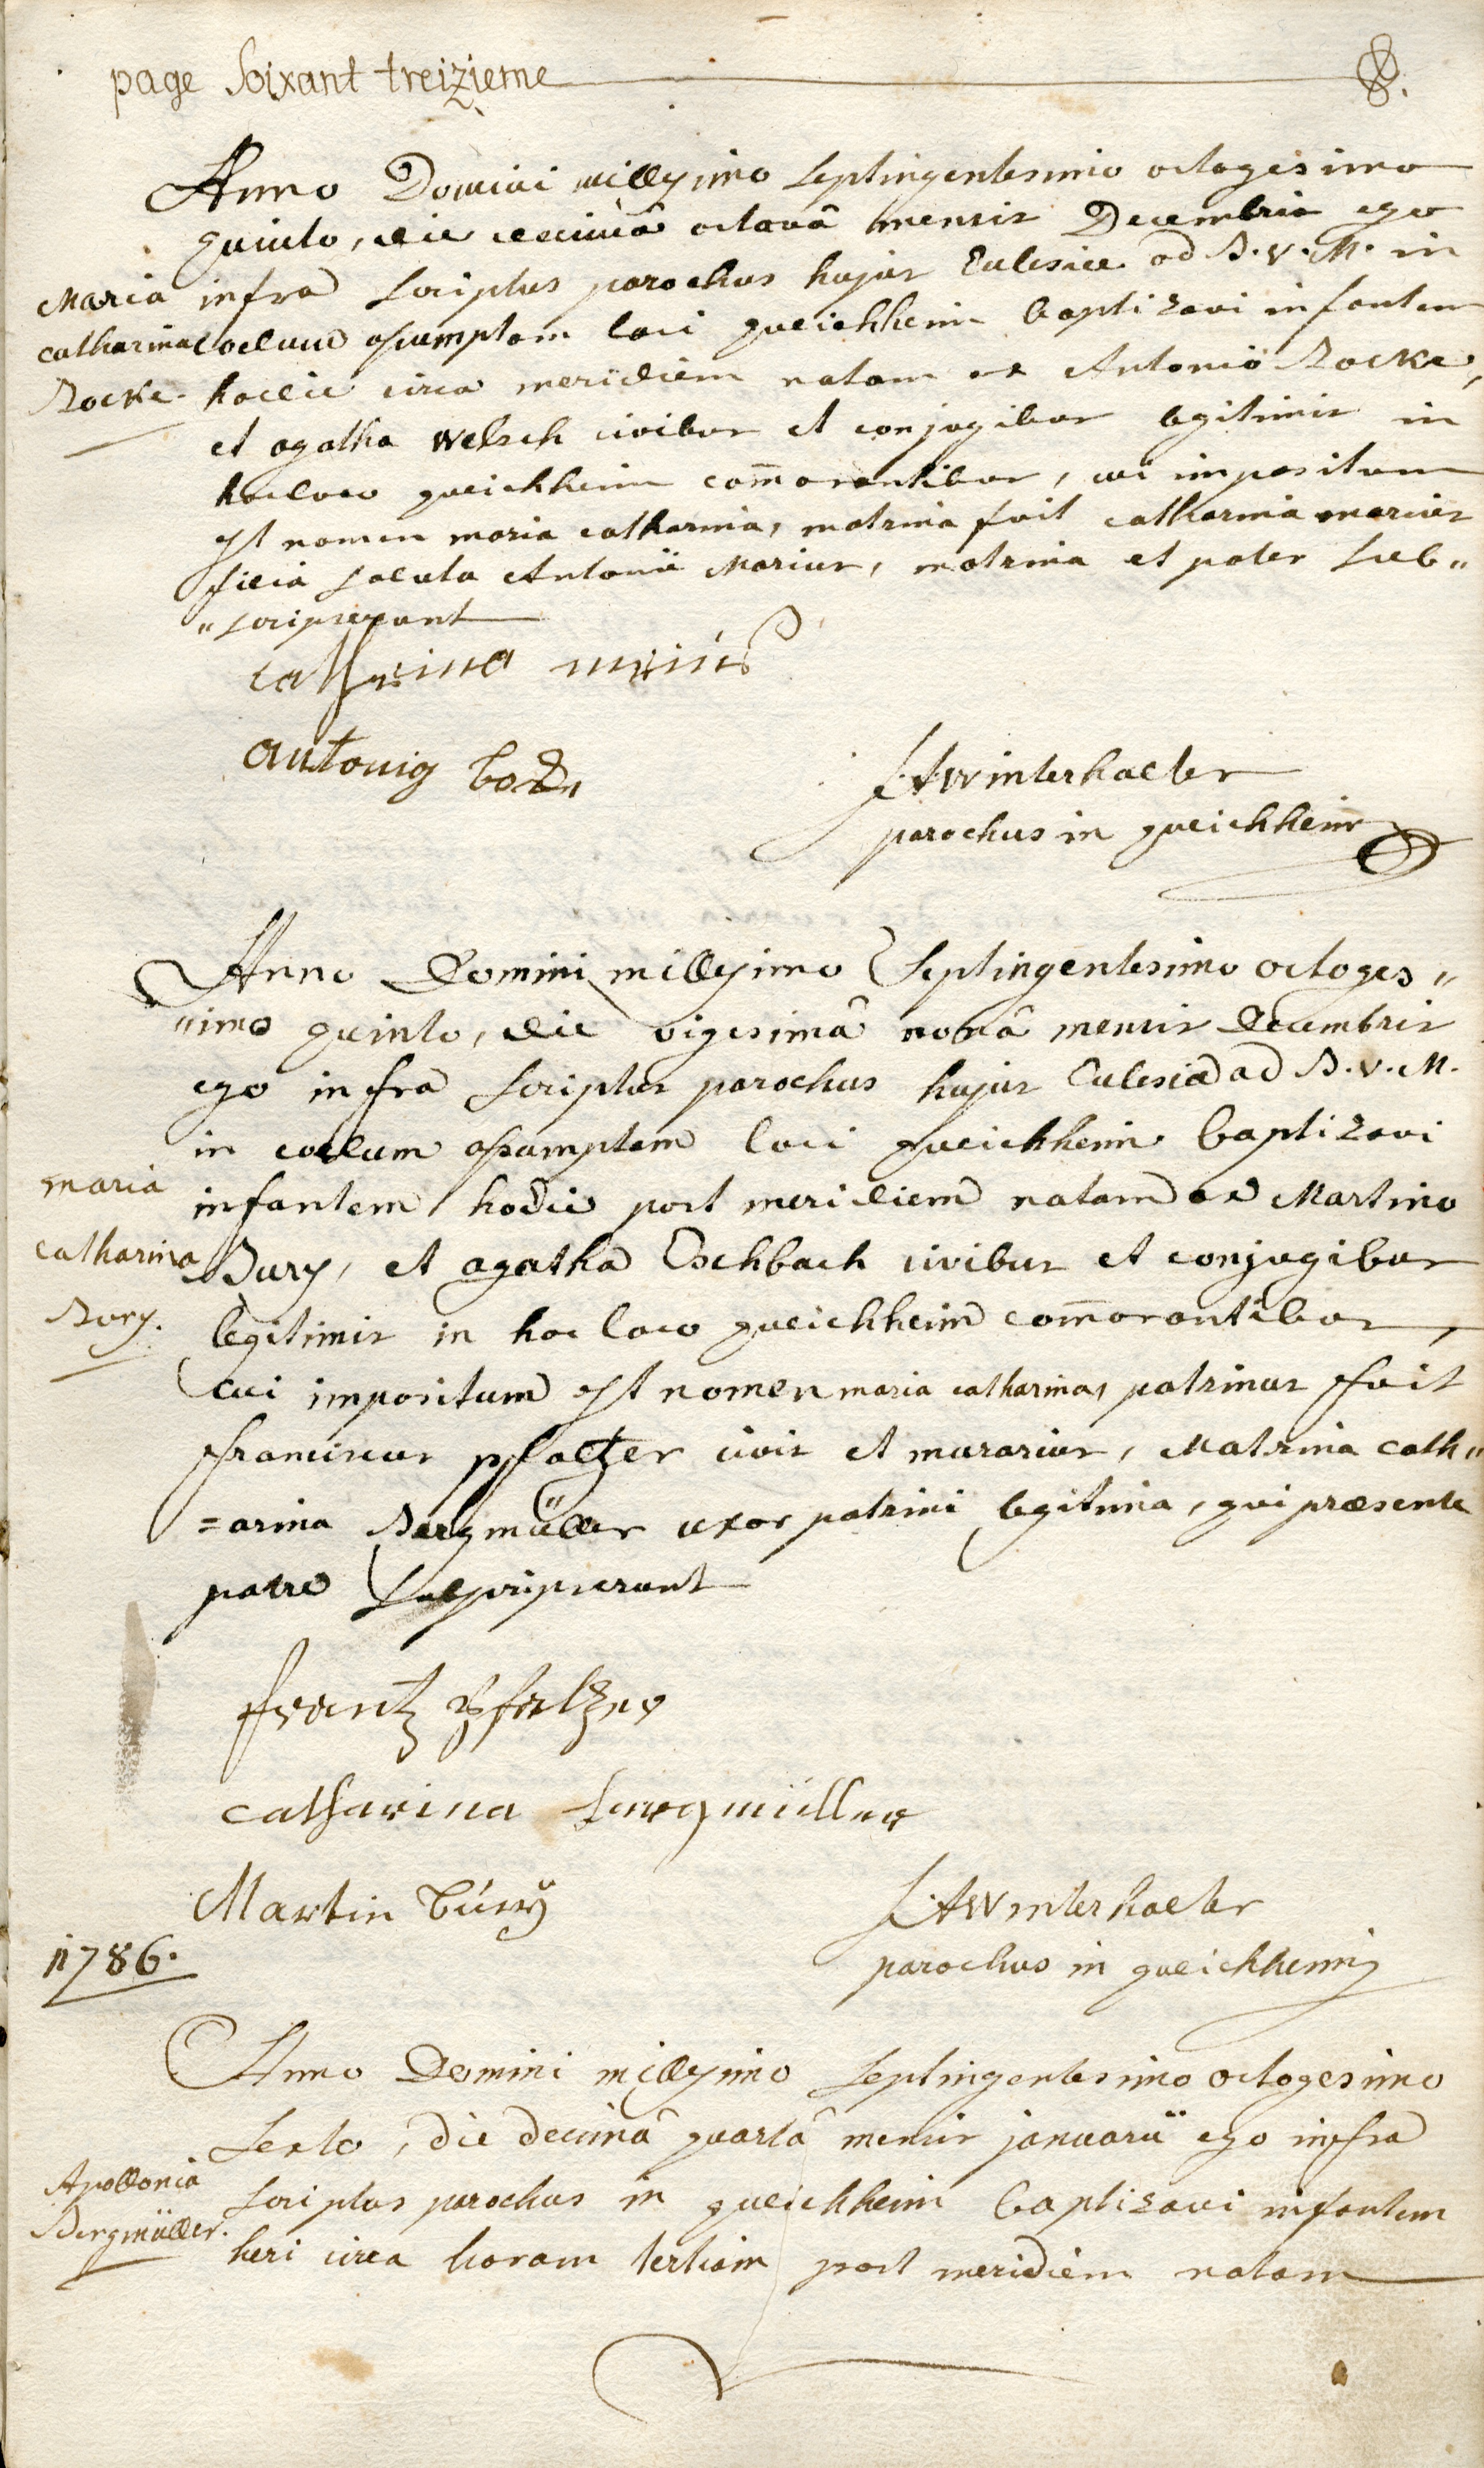 page soixant treizieme
Anno Domini millesimo septingentesimo octogesimo
quinto, die decimâ octavâ mensis Decembris ego
Maria infra scriptus parochus hujus Ecclesiae ad B. V. M. in
catharina coelum assumptam loci queichheim baptizavi infantem
Bocke. hodie circa meridiem natam ex Antonio Bocke,
et agatha Welsch civibus et conjugibus legitimis in
hoc loco queichheim com̄orantibus, cui impositum
est nomen maria catharina, matrina fuit catharina marius
filia soluta Antonii Marius, matrina et pater sub"
"scripserunt
catharina
antonig
J A Winterhalter
parochus in queichheim
Anno Domini millesimo Septingentesimo octoges"
"imo quinto, die vigesimâ nonâ mensis Decembris
ego infra scriptus parochus hujus Ecclesia ad B. V. M.
in coelum assumptam loci queichheim baptizavi
maria infantem hodie post meridiem natam ex Martino
catharina Bury, et agatha Eschbach civibus et conjugibus
Bury. legitimis in hoc loco queichheim com̄orantibus,
cui impositum est nomen maria catharina, patrinus fuit
franciscus pfaltzer civis et murarius, Matrina cath"
=arina Bergmüller uxor patrini legitima, qui praesente
patre subscripserunt
frantz pfalzer
catharina bergmüller
Martin búry
J A Winterhalter
1786. parochus in queichheim
Anno Domini millesimo septingentesimo octogesimo
sexto, die decimâ quartâ mensis januarii ego infra
Apollonia scriptus parochus in queichheim baptizavi infantem
Bergmüller. heri circa horam tertiam post meridiem natam